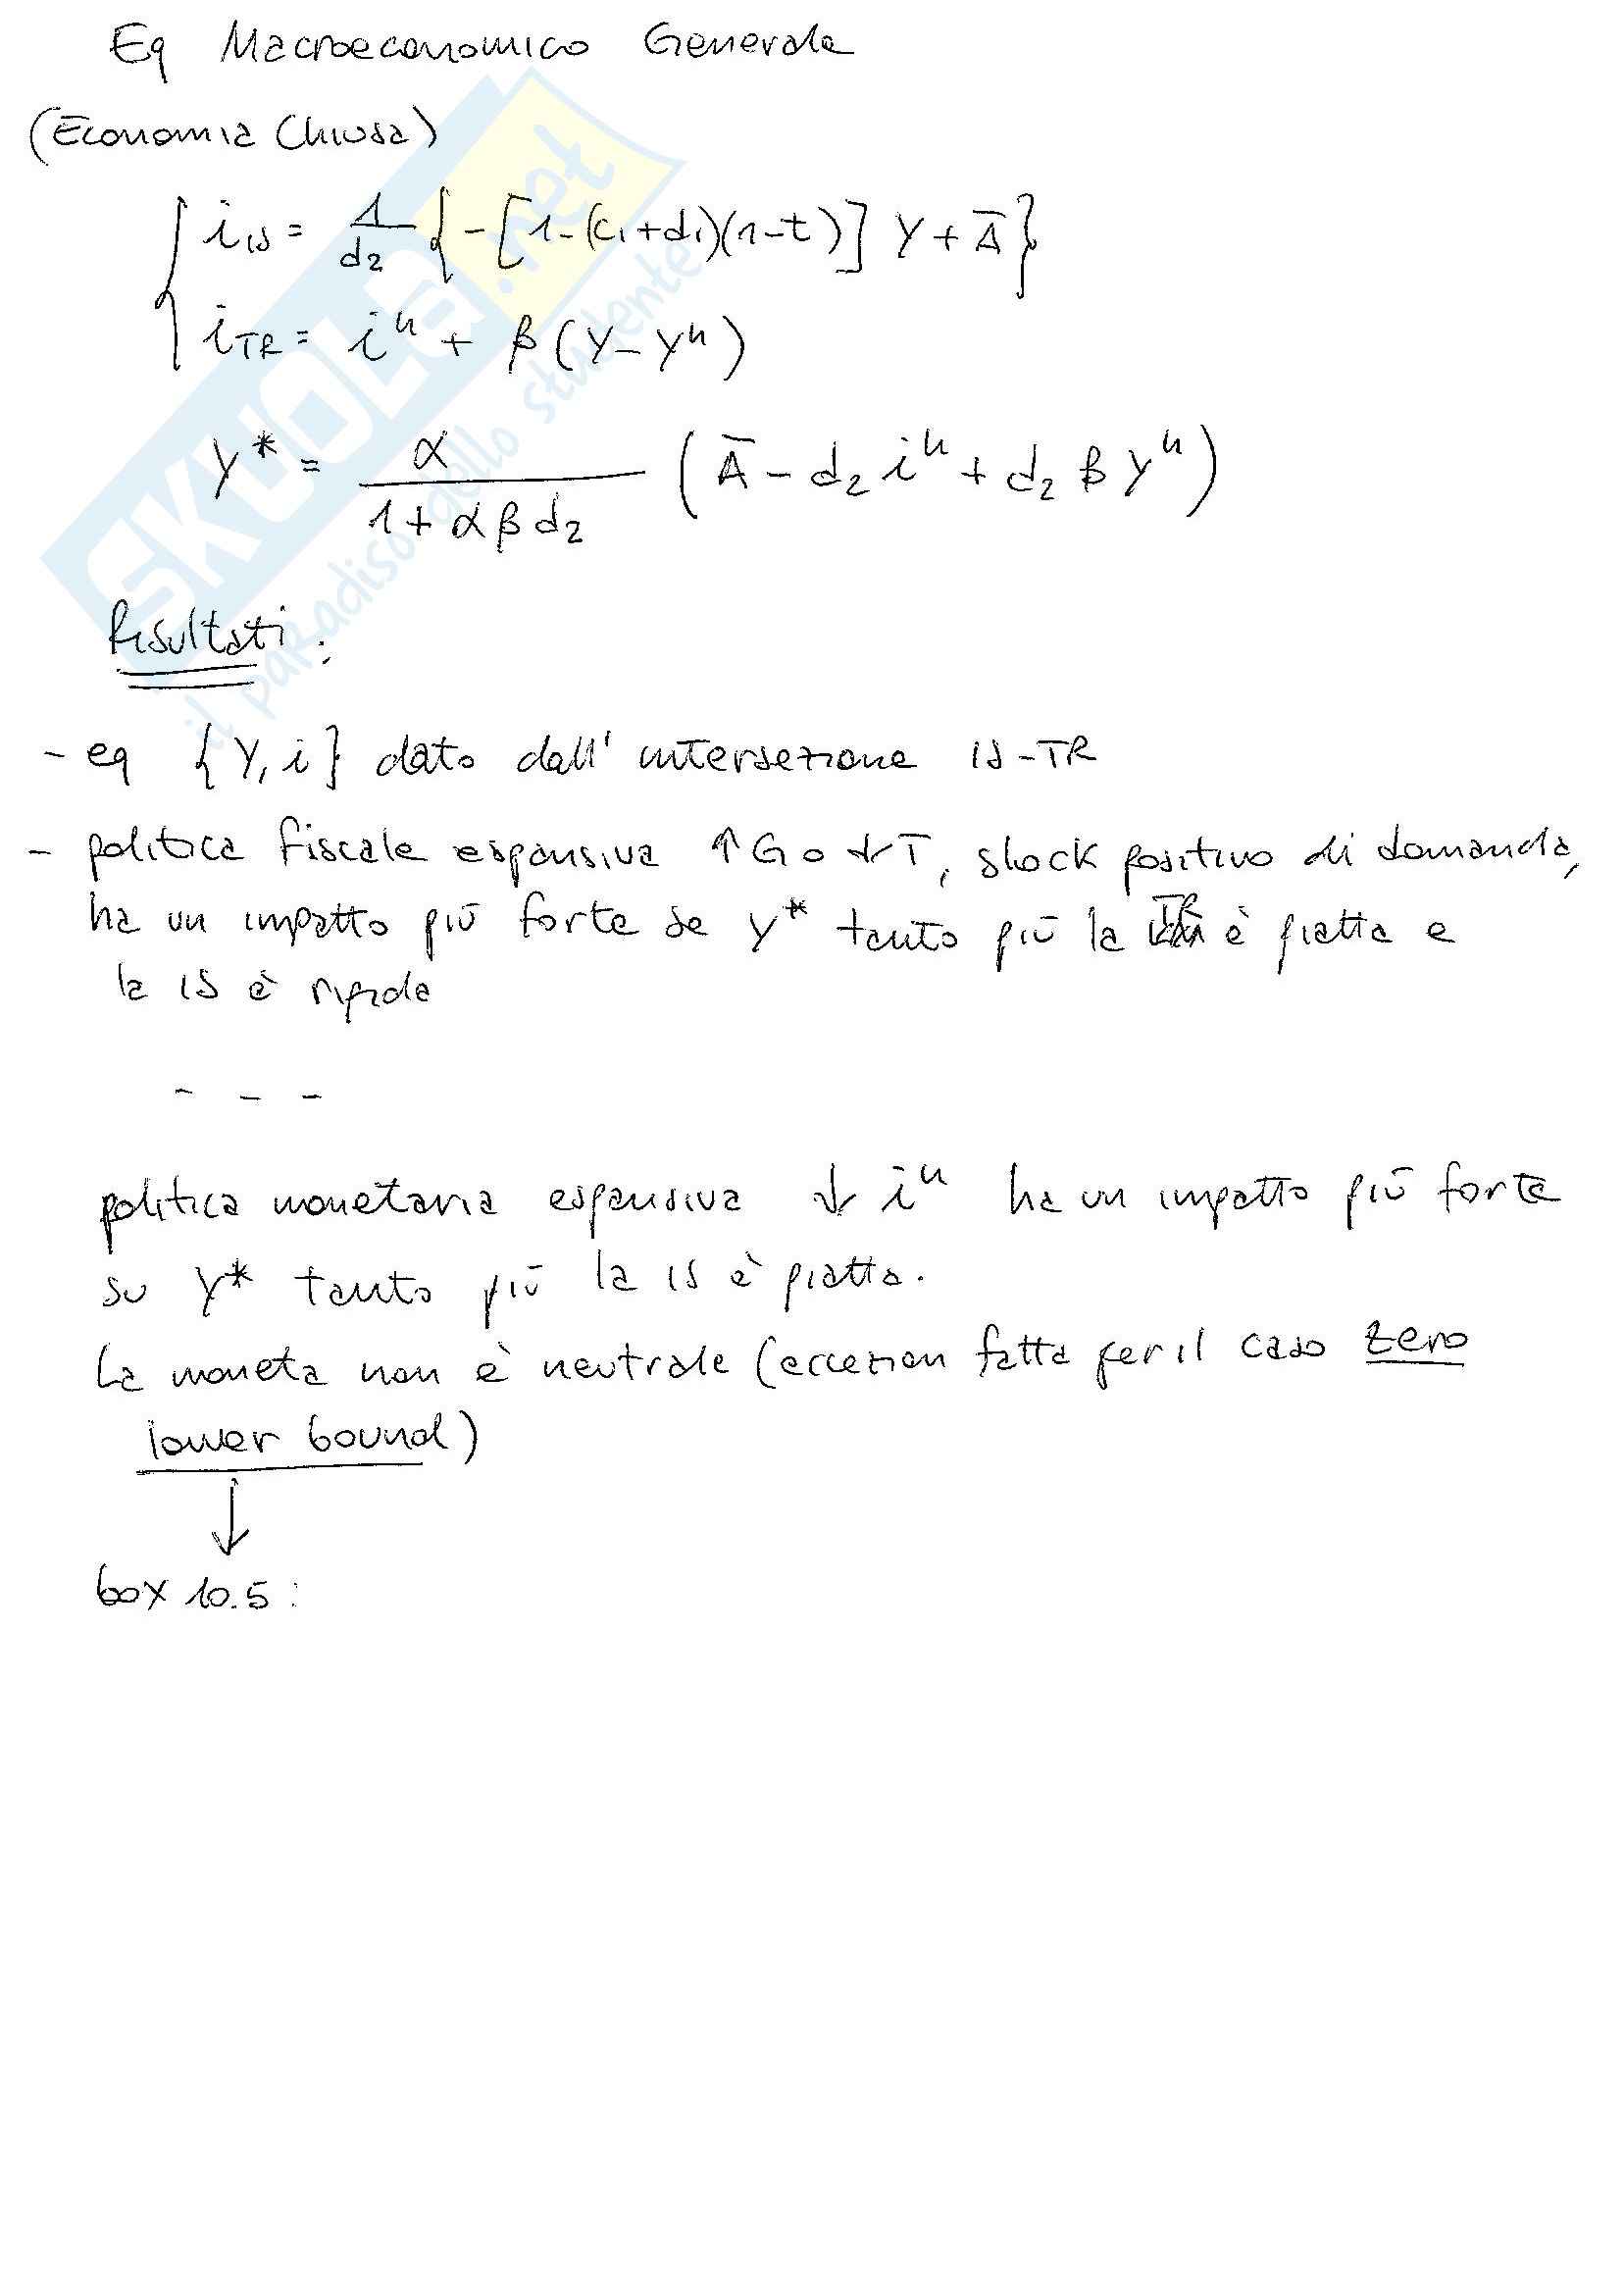 Eq Macroeconomico Generale
(Economia Chiusa)
{ i_IS = 1/d₂ { -[1-(c₁+d₁)(1-t)] Y + Ā }
{ i_TR = iⁿ + β (Y - Yⁿ)
Y* = α / (1 + αβd₂) (Ā - d₂ iⁿ + d₂ β Yⁿ)
Risultati:
- eq {Y, i} dato dall' intersezione IS-TR
- politica fiscale espansiva ↑G o ↓T, shock positivo di domanda,
ha un impatto più forte se Y* tanto più la TR è piatta e
la IS è rigida
- - -
politica monetaria espansiva ↓ iⁿ ha un impatto più forte
su Y* tanto più la IS è piatta.
La moneta non è neutrale (eccezion fatta per il caso zero
lower bound)
↓
box 10.5:
SKUOLA.net
il paradiso dello studente